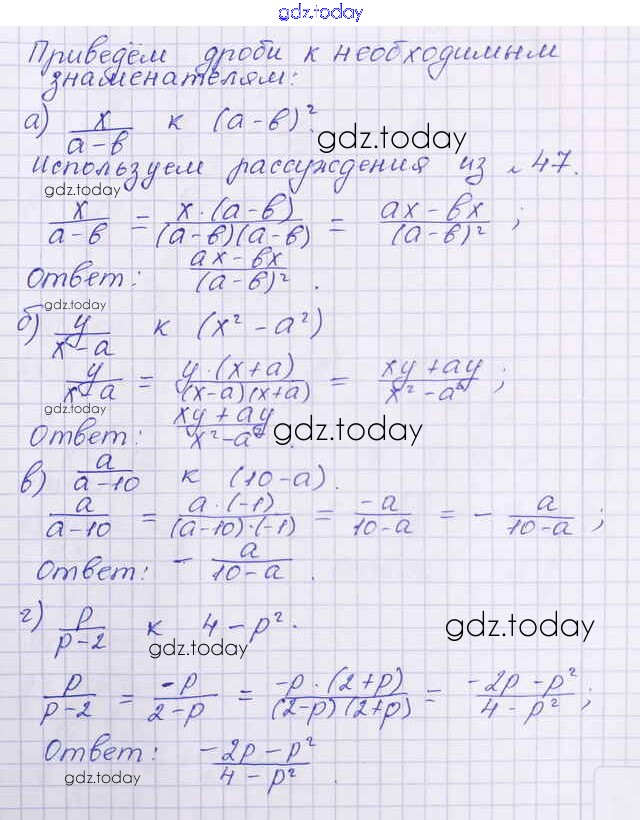 gdz.today
Приведём дроби к необходимым
знаменателям:
а) x/(a-b) к (a-b)².
gdz.today
Используем рассуждения из №47.
gdz.today
x/(a-b) = x·(a-b)/(a-b)(a-b) = (ax-bx)/(a-b)²;
Ответ: (ax-bx)/(a-b)².
gdz.today
б) y/(x-a) к (x²-a²)
y/(x-a) = y·(x+a)/(x-a)(x+a) = (xy+ay)/(x²-a²);
gdz.today
Ответ: (xy+ay)/(x²-a²).
gdz.today
в) a/(a-10) к (10-a).
a/(a-10) = a·(-1)/(a-10)·(-1) = -a/(10-a) = - a/(10-a);
Ответ: - a/(10-a).
г) p/(p-2) к 4-p².
gdz.today
gdz.today
p/(p-2) = -p/(2-p) = -p·(2+p)/(2-p)(2+p) = (-2p-p²)/(4-p²);
Ответ: (-2p-p²)/(4-p²).
gdz.today